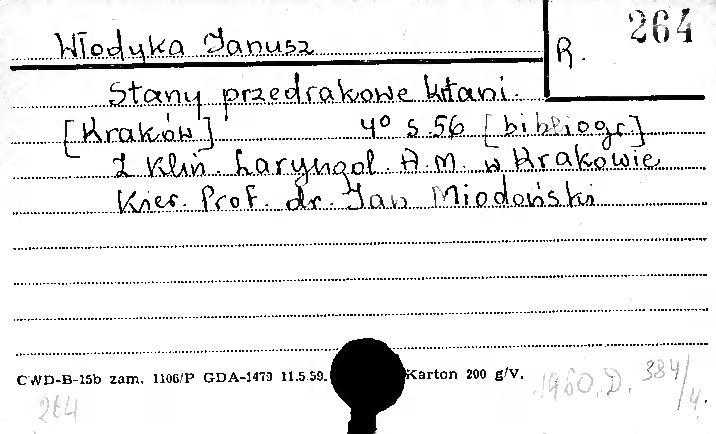 Włodyka Janusz
R. 264
Stany przedrakowe krtani.
[Kraków] 4° s. 56 [bibliogr.]
Z Klin. Laryngol. A.M. w Krakowie
Kier. Prof. dr. Jan Miodoński
CWD-B-15b zam. 1106/P GDA-1479 11.5.59. Karton 200 g/V.
1960.D. 384/4.
264